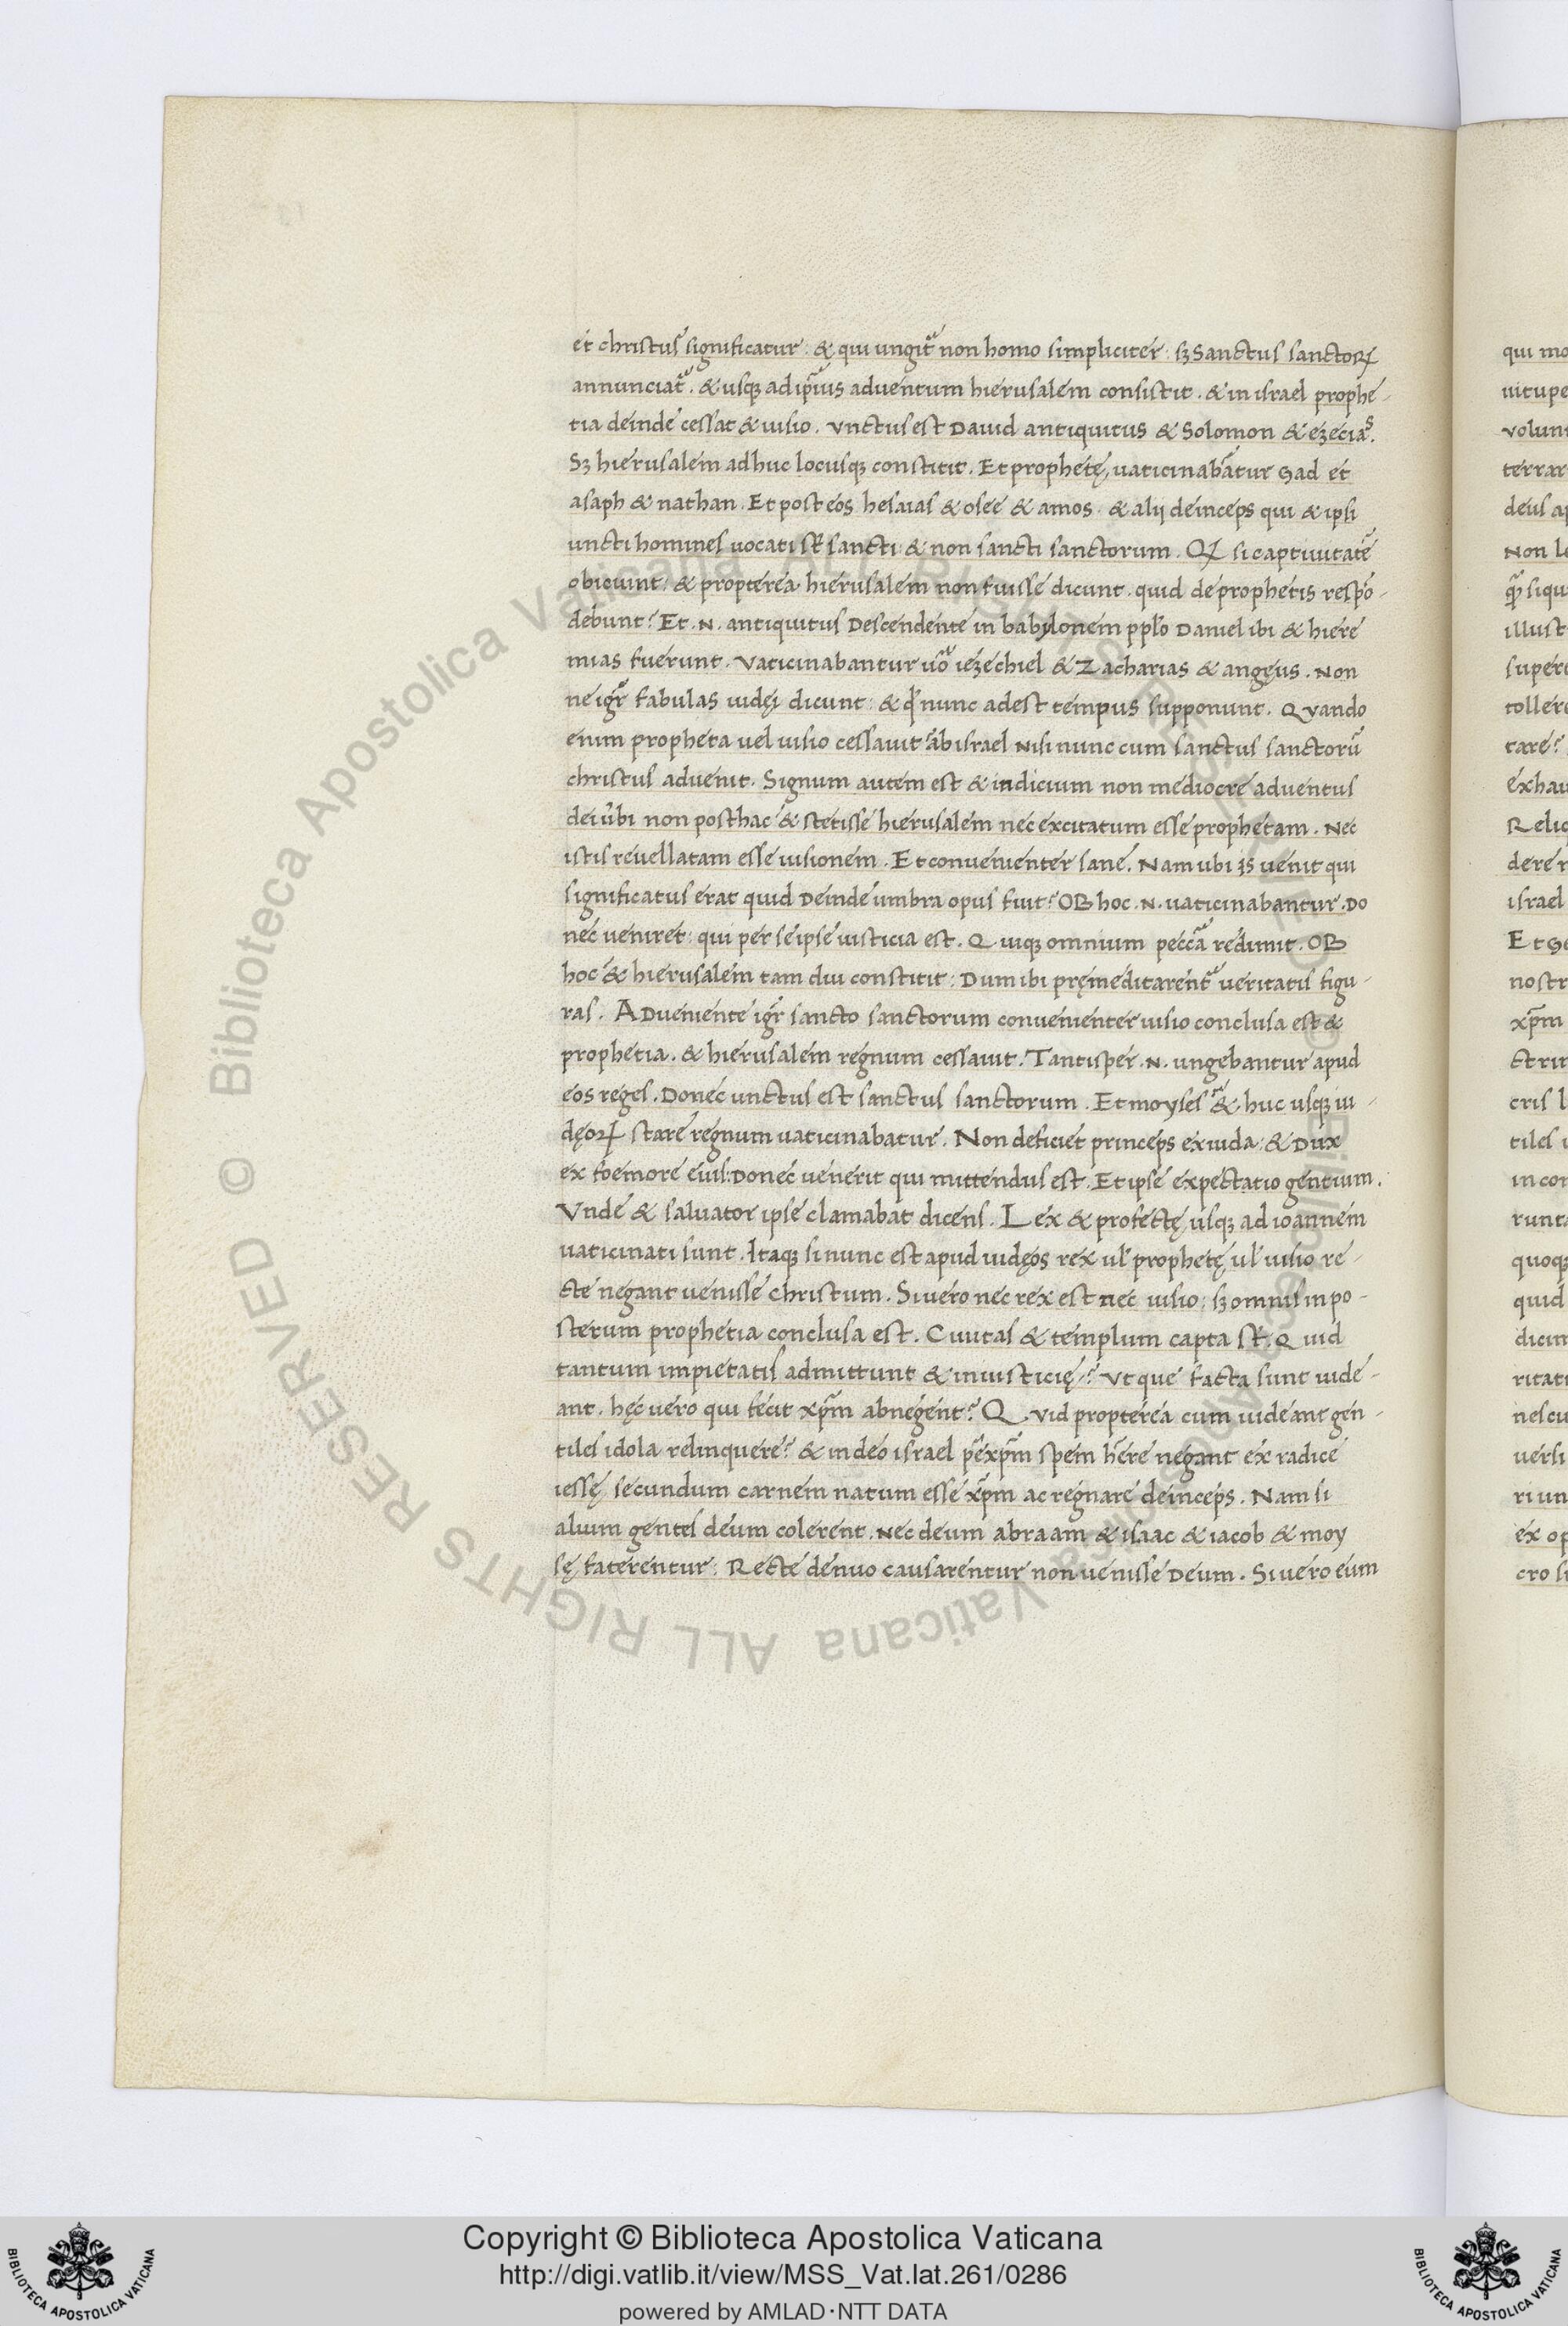 et christus significatur: & qui ungit᷑ non homo simpliciter: sꝫ Sanctus sanctoꝝ
annunciat᷑. & usqꝫ ad ip̄ius aduentum hierusalem consistit. & in israel prophe-
tia deinde cessat & uisio. Vnctus est Dauid antiquitus & Solomon & ezecias.
Sꝫ hierusalem adhuc locusqꝫ constitit. Et prophetę uaticinabātur Gad et
asaph & nathan. Et post eos hesaias & osee & amos. & alij deinceps qui & ipsi
uncti homines uocati st̄ sancti: & non sancti sanctorum. Qꝫ si captiuitatē
obiciunt: & propterea hierusalem non fuisse dicunt. quid de prophetis respō-
debunt? Et .N. antiquitus Descendente in babylonem pplo Daniel ibi & hiere
mias fuerunt. Vaticinabantur uō iezechiel & Zacharias & angęus. Non
ne igr̄ fabulas iudęi dicunt: & qd̓ nunc adest tempus supponunt. Qvando
enim propheta uel uisio cessauit ab israel Nisi nunc cum sanctus sanctorū
christus aduenit. Signum autem est & indicium non mediocre aduentus
dei ubi non posthac & stetisse hierusalem nec excitatum esse prophetam. Nec
istis reuellatam esse uisionem. Et conuenienter sane. Nam ubi is uenit qui
significatus erat quid Deinde umbra opus fuit? OB hoc .N. uaticinabantur. Do
nec ueniret: qui per se ipse iusticia est. Quiqꝫ omnium peccā redimit. OB
hoc & hierusalem tam diu constitit: Dum ibi pręmeditarent᷑ ueritatis figu-
ras. ADueniente igr̄ sancto sanctorum conuenienter uisio conclusa est &
prophetia. & hierusalem regnum cessauit. Tantisper .N. ungebantur apud
eos reges. Donec unctus est sanctus sanctorum. Et moyses & huc usqꝫ iu-
dęoꝝ stare regnum uaticinabatur. Non deficiet princeps ex iuda: & Dux
ex foemore eius: Donec uenerit qui mittendus est. Et ipse expectatio gentium.
Vnde & saluator ipse clamabat dicens. Lex & profectę usqꝫ ad ioannem
uaticinati sunt. Itaqꝫ si nunc est apud iudęos rex ul̓ prophetę ul̓ uisio re-
cte negant uenisse Christum. Si uero nec rex est nec uisio: sꝫ omnis in po-
sterum prophetia conclusa est. Ciuitas & templum capta st̄. Quid
tantum impietatis admittunt & iniusticię? Vt que facta sunt uide-
ant. hęc uero qui fecit xp̄m abnegent? Qvid propterea cum uideant gen-
tiles idola relinquere? & in deo israel p̄ exp̄m spem hr̄e negant ex radice
iessę secundum carnem natum esse xp̄m ac regnare deinceps. Nam si
alium gentes deum colerent. Nec deum abraam & isaac & iacob & moy
sę faterentur: Recte denuo causarentur non uenisse Deum. Si uero eum
Copyright © Biblioteca Apostolica Vaticana
http://digi.vatlib.it/view/MSS_Vat.lat.261/0286
powered by AMLAD·NTT DATA